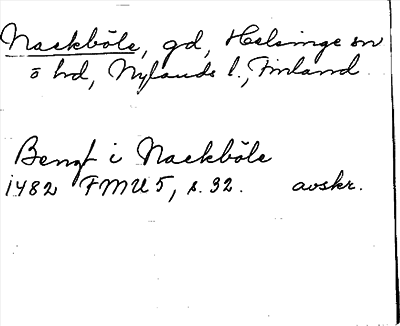 Nackböle, gd, Helsinge sn
o hd, Nylands l., Finland
Bengt i Nackböle
1482 FMU 5, s. 32. avskr.